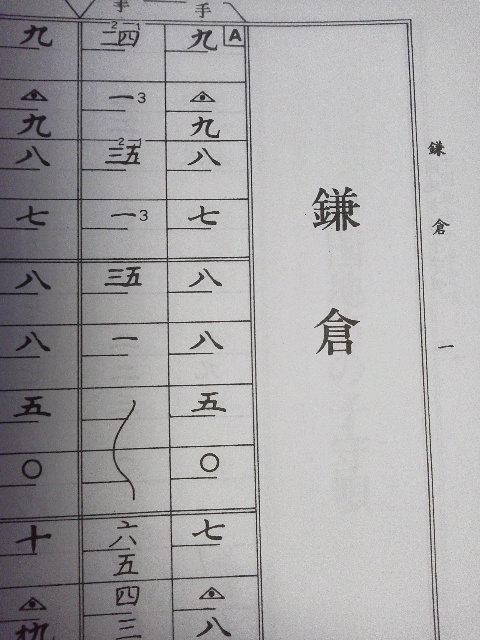 鎌倉 一
鎌倉
手
A
九
九
八
七
八
八
五
○
七
八
2 1
二四
一3
2 1
三五
一3
三五
一
六
五
四
三
九
九
八
七
八
八
五
○
十